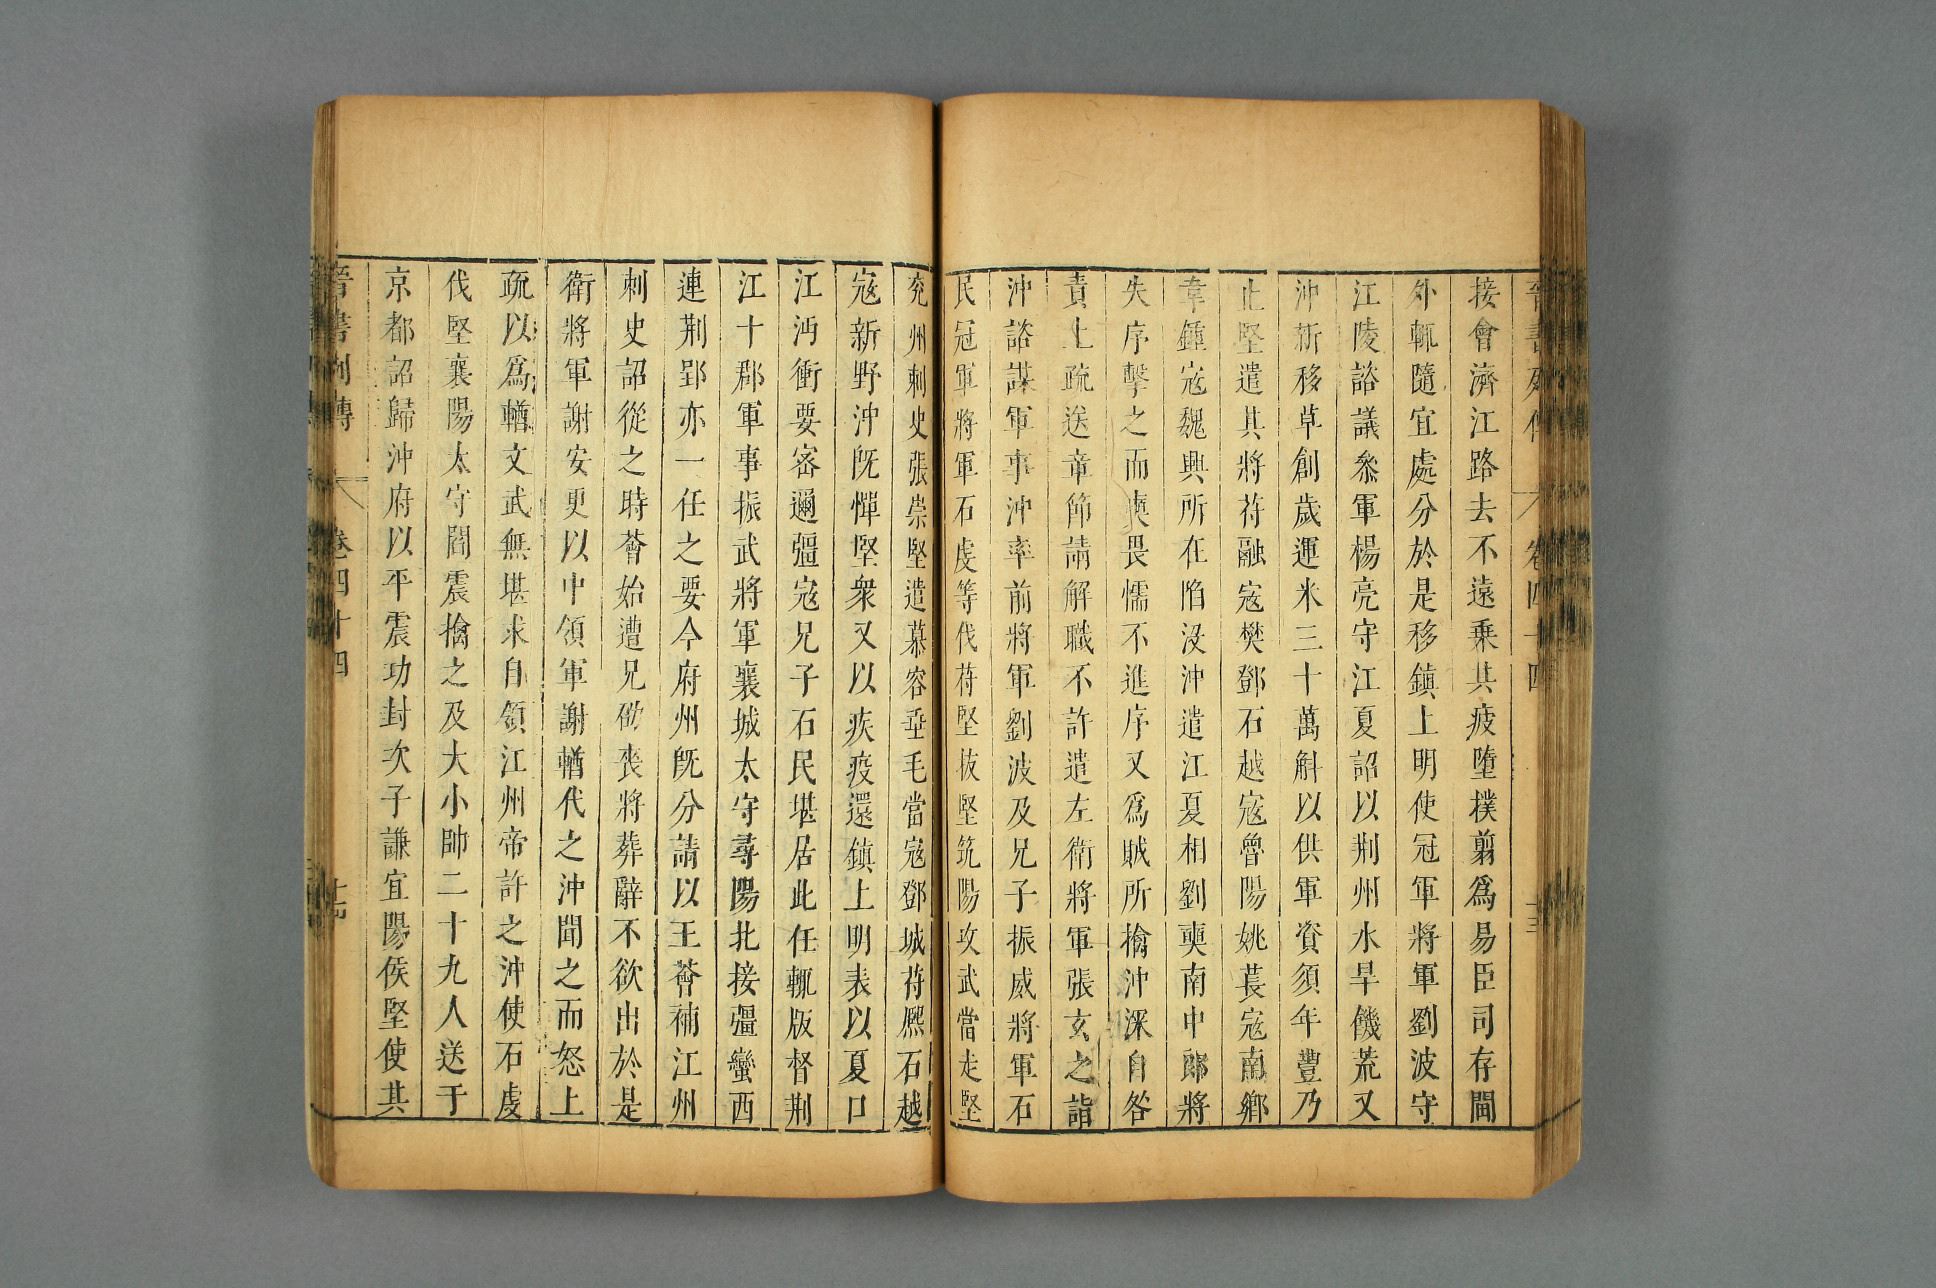 晉書列傳 卷四十四 十三
接會濟江路去不遠乗其疲墮撲翦爲易臣司存閫
外輒隨宜處分於是移鎮上明使冠軍將軍劉波守
江陵諮議叅軍楊亮守江夏詔以荆州水旱饑荒又
沖新移草創歲運米三十萬斛以供軍資須年豐乃
止堅遣其將苻融寇樊鄧石越寇魯陽姚萇寇南鄉
韋鍾寇魏興所在陷没沖遣江夏相劉奭南中郎將
朱序擊之而奭畏懦不進序又爲賊所擒沖深自咎
責上疏送章節請解職不許遣左衛將軍張玄之詣
沖諮謀軍事沖率前將軍劉波及兄子振威將軍石
民冠軍將軍石虔等伐苻堅拔堅筑陽攻武當走堅
兖州刺史張崇堅遣慕容垂毛當寇鄧城苻熈石越
寇新野沖旣憚堅衆又以疾疫還鎮上明表以夏口
江沔衝要宻邇疆寇兄子石民堪居此任輒版督荆
江十郡軍事振武將軍襄城太守尋陽北接彊蠻西
連荆郢亦一任之要今府州旣分請以王薈補江州
刺史詔從之時薈始遭兄劭喪將葬辭不欲出於是
衛將軍謝安更以中領軍謝輶代之沖聞之而怒上
疏以爲輶文武無堪求自領江州帝許之沖使石虔
伐堅襄陽太守閻震擒之及大小帥二十九人送于
京都詔歸沖府以平震功封次子謙宜陽侯堅使其
晉書列傳 卷四十四 十四